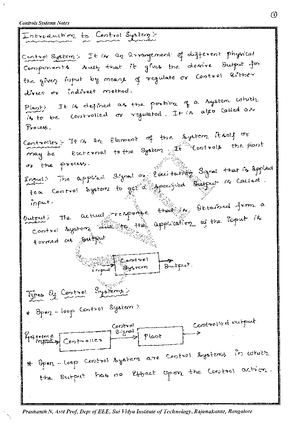 Controls Systems Notes
Introduction to Control System:-
Control System:- It is an arrangement of different physical
Components such that it gives the desire Output for
the given input by means of regulate or Control either
direct or indirect method.
Plant:- It is defined as the portion of a System which
is to be Controlled or regulated. It is also called as
Process.
Controller:- It is an Element of the System itself or
may be External to the System. It Controls the plant
or the process.
Input:- The applied Signal or Excitation Signal that is applied
to a Control System to get a Specified Output is called
input.
Output:- The actual response that is obtained from a
Control System due to the application of the input is
termed as Output
input Control System Output
Types Of Control Systems:-
* Open-loop Control System:
Reference input Controller Control Signal Plant Controlled output
* Open-loop Control System are Control Systems in which
the Output has no Effect upon the Control action.
Prashanth N, Asst Prof, Dept of EEE, Sai Vidya Institute of Technology, Rajanukunte, Bangalore